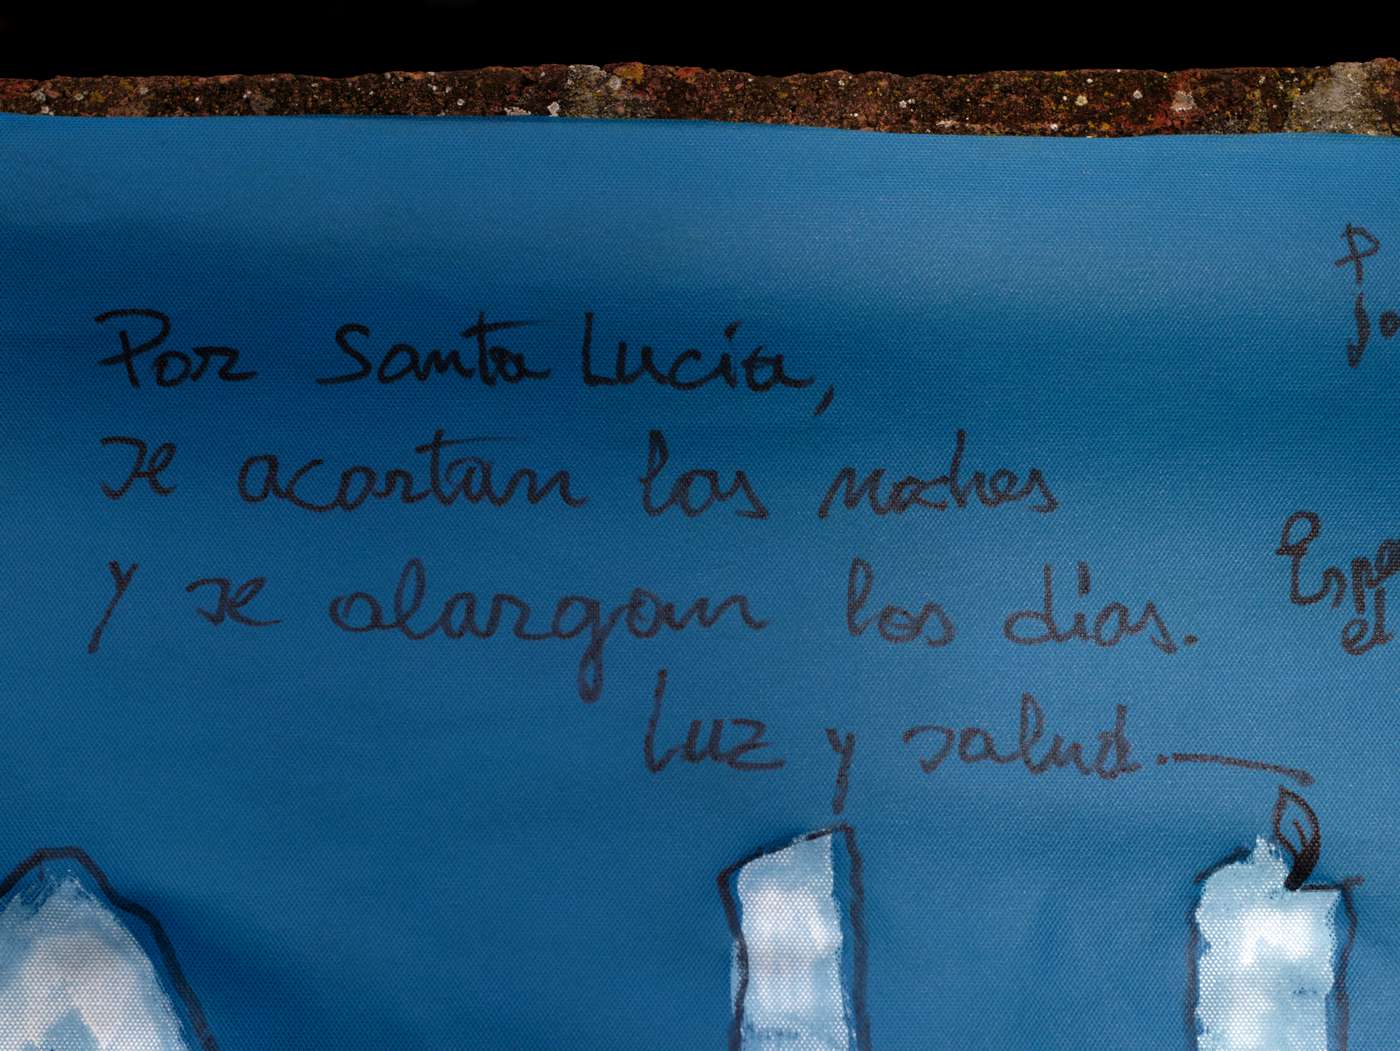 Por Santa Lucia,
se acortan las noches
y se alargan los días.
Luz y salud.
P
so
Espe
el